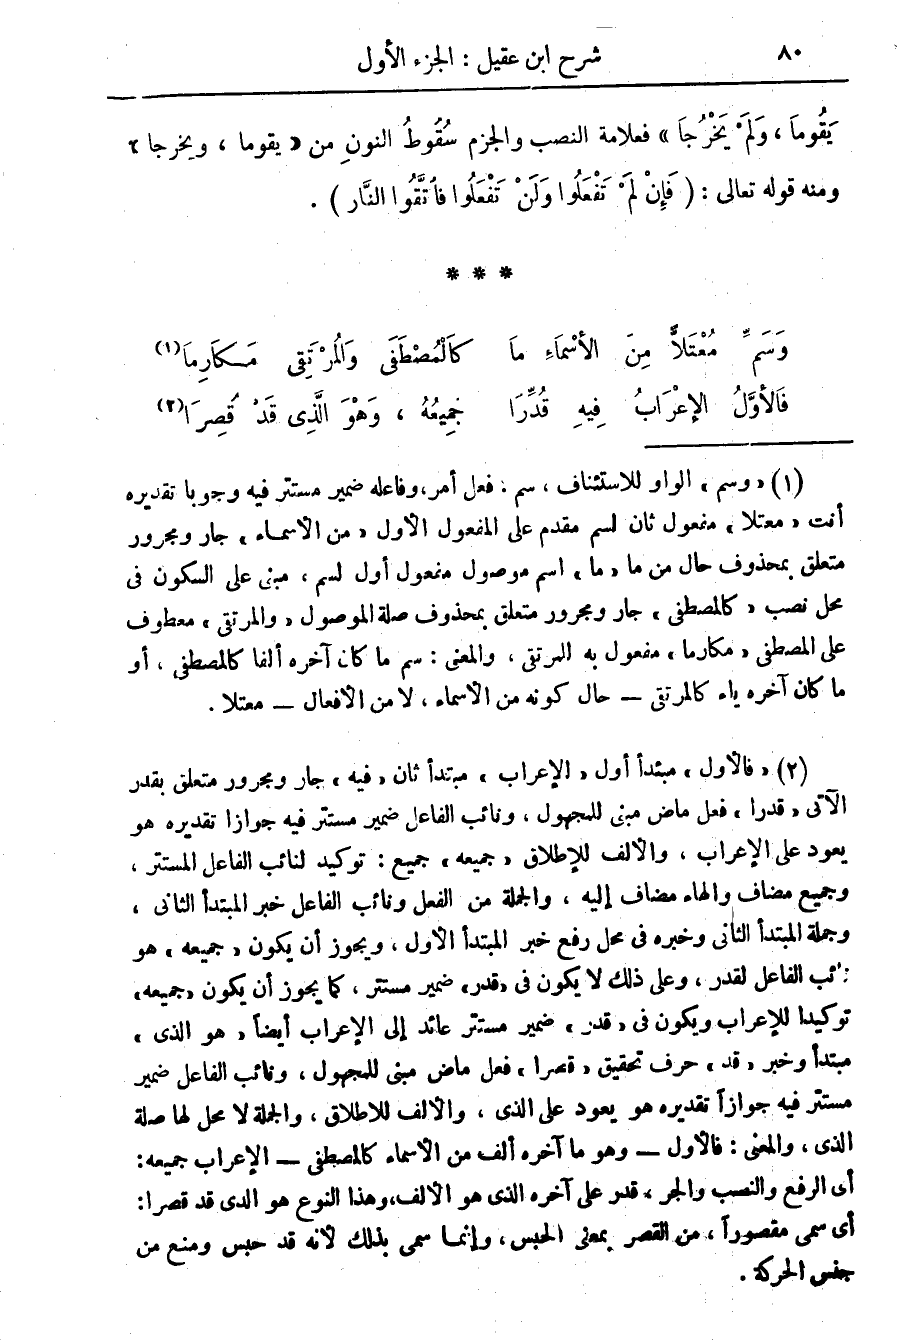 ٨٠ شرح ابن عقيل : الجزء الأول
يَقُومَا ، وَلَمْ يَخْرُجَا » فعلامة النصب والجزم سُقُوطُ النون من « يقوما ، ويخرجا »
ومنه قوله تعالى : ( فَإِنْ لَمْ تَفْعَلُوا وَلَنْ تَفْعَلُوا فَاتَّقُوا النَّار ) .
* * *
وَسَمِّ مُعْتَلاًّ مِنَ الأسْمَاءِ مَا كَالْمُصْطَفَى وَالمُرْتَقِى مَكَارِمَا (١)
فَالأوَّلُ الإعْرَابُ فِيهِ قُدِّرَا جَمِيعُهُ ، وَهْوَ الَّذِى قَدْ قُصِرَا (٢)
(١) « وسم » الواو للاستئناف ، سم : فعل أمر ، وفاعله ضمير مستتر فيه وجوبا تقديره
أنت « معتلا » مفعول ثان لسم مقدم على المفعول الأول « من الأسماء » جار ومجرور
متعلق بمحذوف حال من ما « ما » اسم موصول مفعول أول لسم ، مبنى على السكون فى
محل نصب « كالمصطفى » جار ومجرور متعلق بمحذوف صلة الموصول « والمرتقى » معطوف
على المصطفى « مكارما » مفعول به المرتقى ، والمعنى : سم ما كان آخره ألفا كالمصطفى ، أو
ما كان آخره ياء كالمرتقى — حال كونه من الأسماء ، لا من الأفعال — معتلا .
(٢) « فالأول » مبتدأ أول « الإعراب » مبتدأ ثان « فيه » جار ومجرور متعلق بقدر
الآتى « قدرا » فعل ماض مبنى للمجهول ، ونائب الفاعل ضمير مستتر فيه جوازا تقديره هو
يعود على الإعراب ، والألف للإطلاق « جميعه » جميع : توكيد لنائب الفاعل المستتر ،
وجميع مضاف والهاء مضاف إليه ، والجملة من الفعل ونائب الفاعل خبر المبتدأ الثانى ،
وجملة المبتدأ الثانى وخبره فى محل رفع خبر المبتدأ الأول ، ويجوز أن يكون « جميعه » هو
نائب الفاعل لقدر ، وعلى ذلك لا يكون فى « قدر » ضمير مستتر ، كما يجوز أن يكون « جميعه »
توكيدا للإعراب ويكون فى « قدر » ضمير مستتر عائد إلى الإعراب أيضاً « هو الذى »
مبتدأ وخبر « قد » حرف تحقيق « قصرا » فعل ماض مبنى للمجهول ، ونائب الفاعل ضمير
مستتر فيه جوازاً تقديره هو يعود على الذى ، والألف للاطلاق ، والجملة لا محل لها صلة
الذى ، والمعنى : فالأول — وهو ما آخره ألف من الأسماء كالمصطفى — الإعراب جميعه :
أى الرفع والنصب والجر ، قدر على آخره الذى هو الألف ، وهذا النوع هو الذى قد قصرا :
أى سمى مقصوراً ، من القصر بمعنى الحبس ، وإنما سمى بذلك لأنه قد حبس ومنع من
جنس الحركة .